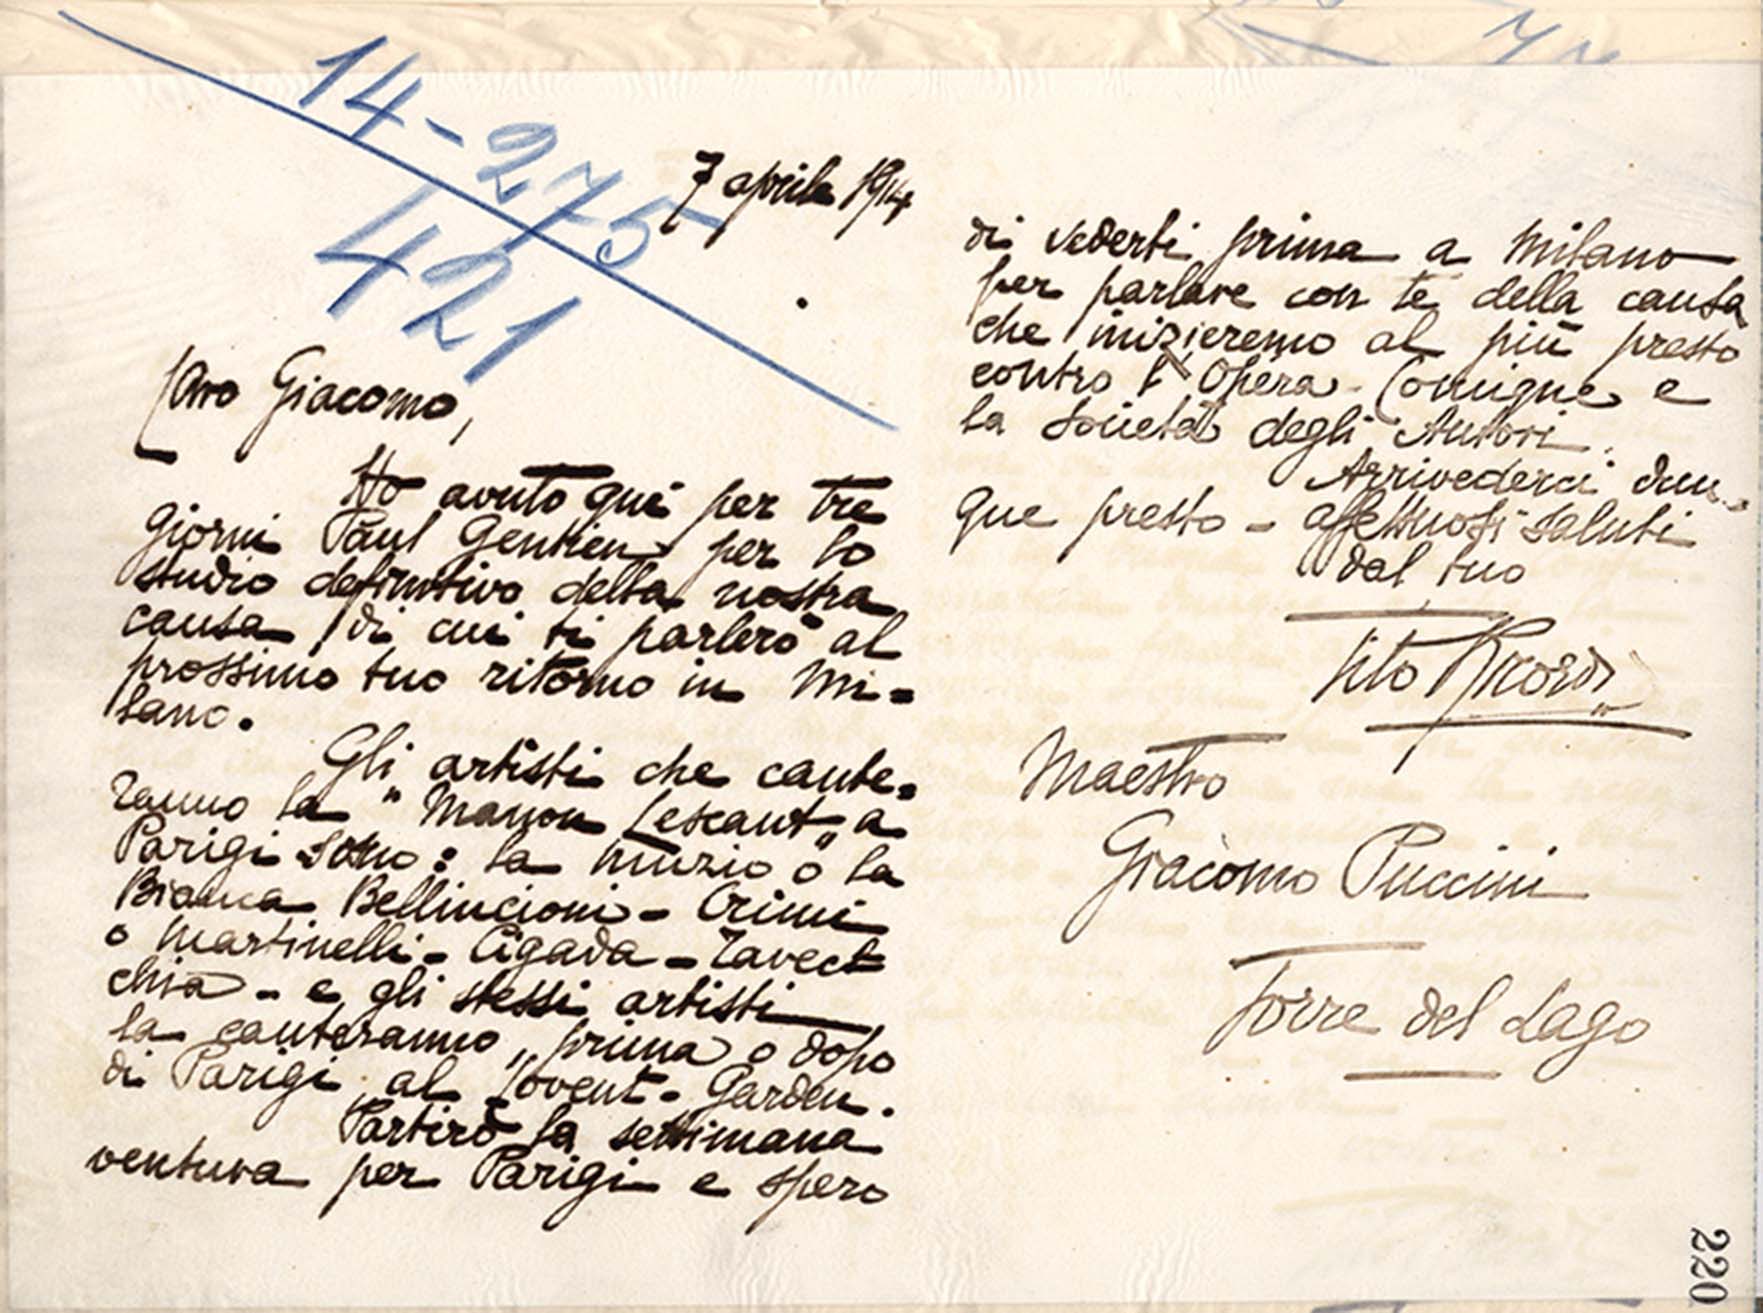 14-275
421
7 aprile 1914
Caro Giacomo,
Ho avuto qui per tre
giorni Paul Gentien per lo
studio definitivo della nostra
causa, di cui ti parlerò al
prossimo tuo ritorno in Mi=
lano.
Gli artisti che cante=
ranno la "Manon Lescaut" a
Parigi sono: la Muzio o la
Bianca Bellincioni - Crimi
o Martinelli - Cigada -
chia - e gli stessi artisti
la canteranno, prima o dopo
di Parigi al Covent-Garden.
Partirò la settimana
ventura per Parigi e spero
di vederti prima a Milano
per parlare con te della causa
che inizieremo al più presto
contro l'Opéra-Comique e
la Società degli Autori.
Arrivederci dun=
que presto - affettuosi saluti
dal tuo
Tito Ricordi
Maestro
Giacomo Puccini
Torre del Lago
220